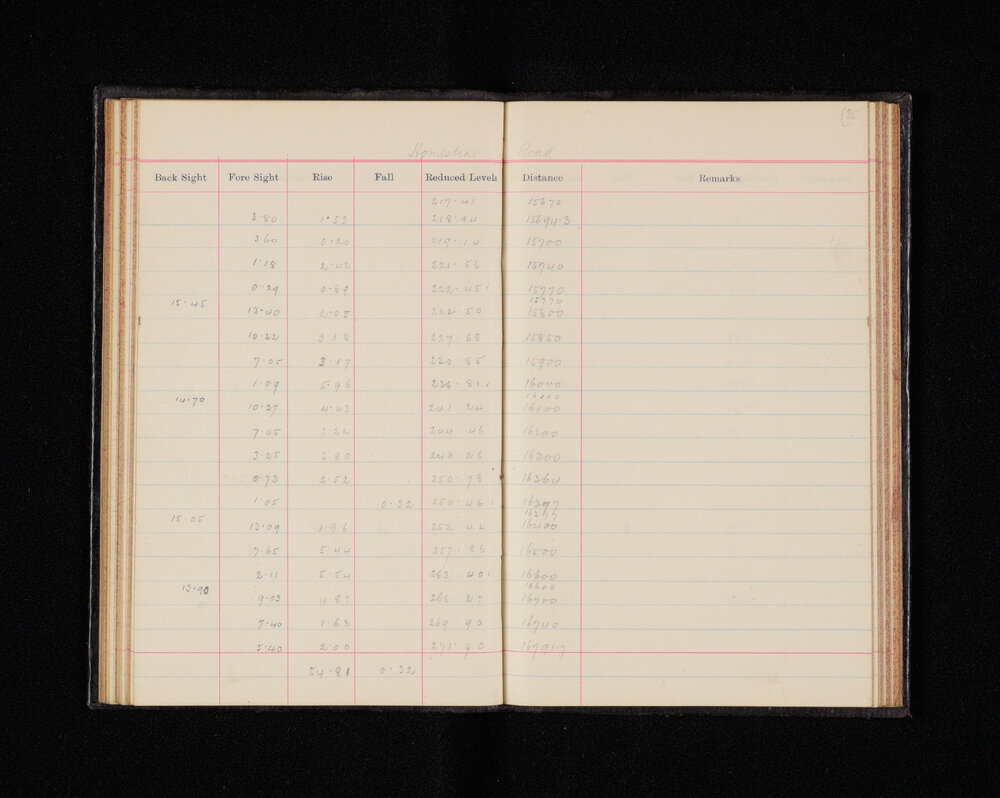 (35
Homestead Road
Back Sight Fore Sight Rise Fall Reduced Levels Distance Remarks
217.41 15670
3.80 1.53 218.94 15694.3
3.60 0.20 219.14 15700
1.18 2.42 221.56 15740
0.29 0.89 222.45 15770
15.45 15770
13.40 2.05 224.50 15800
10.22 3.18 227.68 15850
7.05 3.17 230.85 15900
1.09 5.96 236.81 16000
14.70 16000
10.27 4.43 241.24 16100
7.05 3.22 244.46 16200
3.25 3.80 248.26 16300
0.73 2.52 250.78 16364
1.05 0.32 250.46 16377
15.05 16377
13.09 1.96 252.42 16400
7.65 5.44 257.86 16500
2.11 5.54 263.40 16600
13.90 16600
9.03 4.87 268.27 16700
7.40 1.63 269.90 16740
5.40 2.00 271.90 16791.7
54.81 0.32